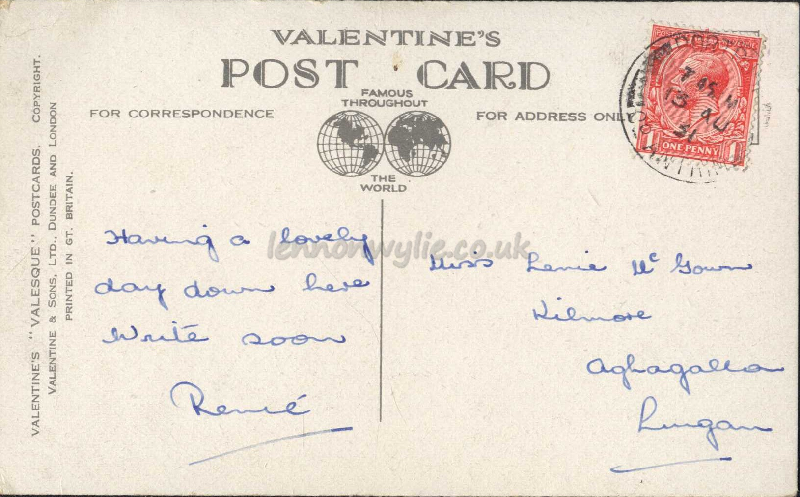 VALENTINE'S
POST CARD
FAMOUS
THROUGHOUT
FOR CORRESPONDENCE
FOR ADDRESS ONLY
THE
WORLD
VALENTINE'S "VALESQUE" POSTCARDS. COPYRIGHT.
VALENTINE & SONS, LTD., DUNDEE AND LONDON
PRINTED IN GT. BRITAIN.
lennonwylie.co.uk
Having a lovely
day down here
Write soon
Renié
Miss Lenie McGown
Kilmore
Aghagallon
Lurgan
13 AU
31
1 ONE PENNY 1